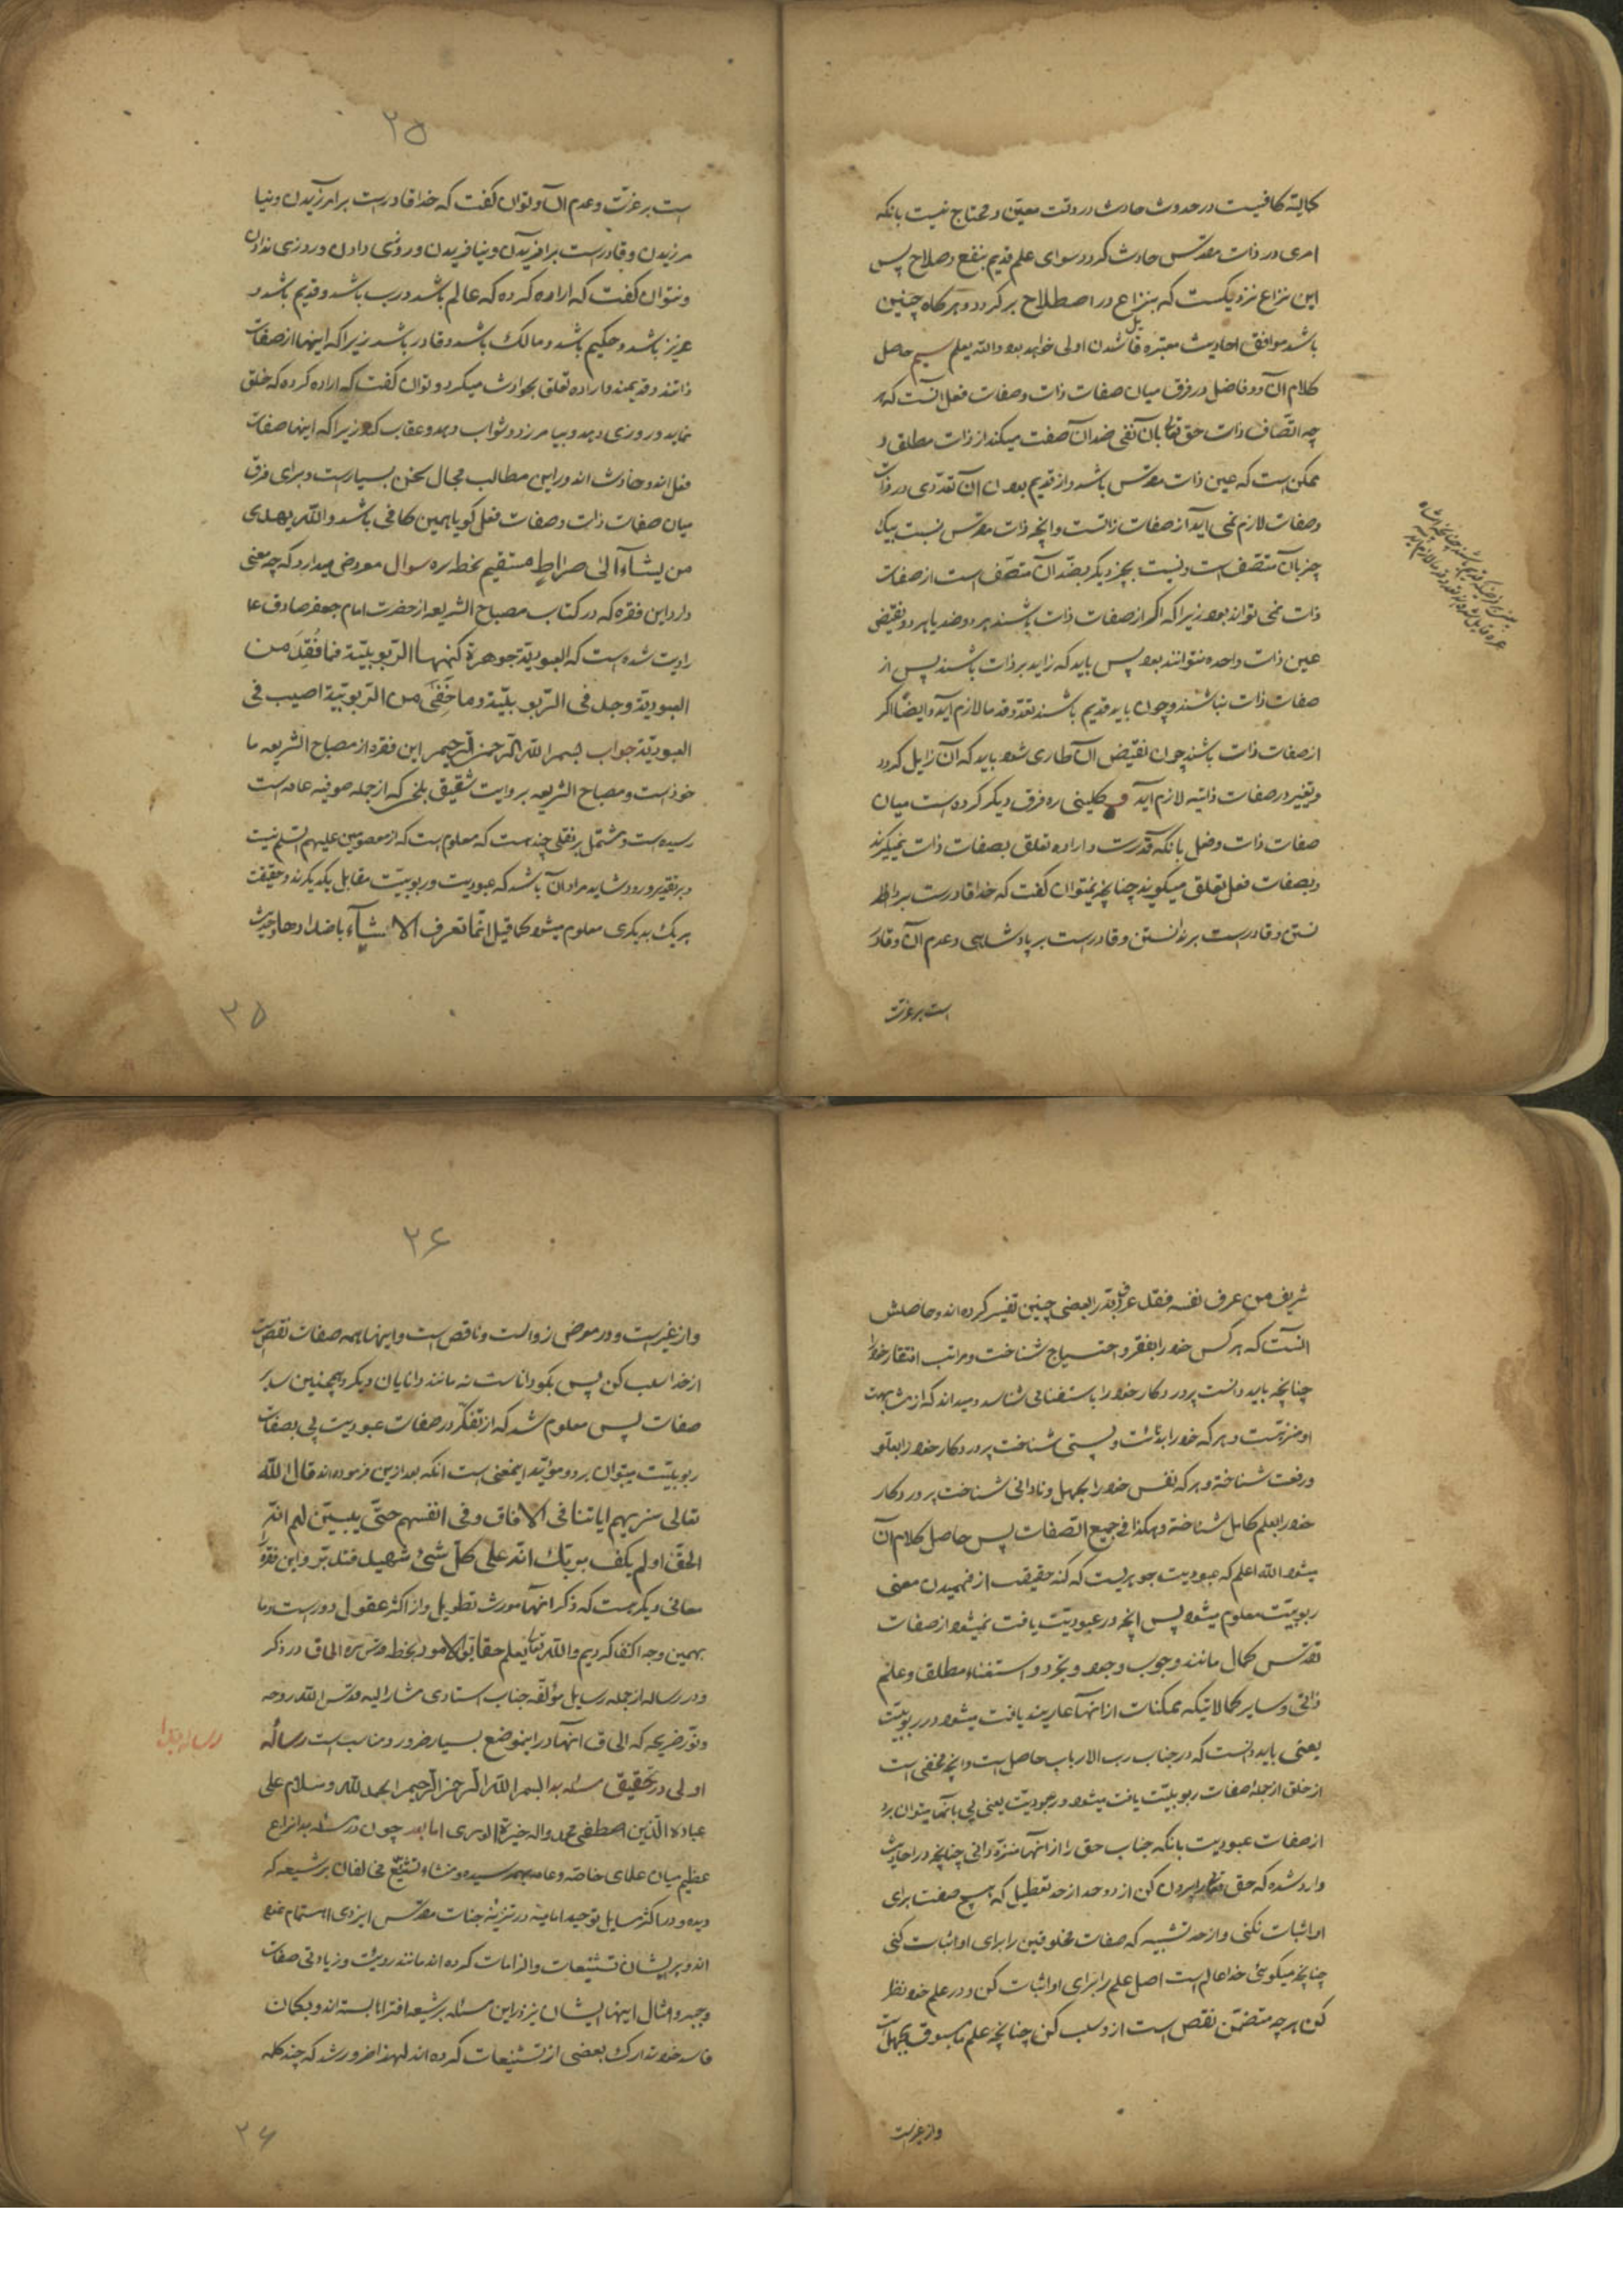 کالیته کافیست در حدوث حادث در وقت معین و محتاج نیست بانکه
امری در ذات مقدس حادث کردد سوای علم قدیم بنفع و صلاح پس
این نزاع نزدیکست که بنزاع در اصطلاح بر کردد و هرکاه چنین
باشد موافق احادیث معتبره قائل شدن اولی خواهد بود والله یعلم سیم حاصل
کلام آن دو فاضل در فرق میان صفات ذات و صفات فعل آنست که هر
چه اتصاف ذات حق تعالی بآن نفی ضد آن صفت میکند از ذات مطلق و
ممکن است که عین ذات مقدس باشد و از قدیم بودن آن تعددی در ذات
و صفات لازم نمی آید آن از صفات ذاتست و آنچه ذات مقدس نسبت بیک
چیز بآن متصف است و نسبت بچیز دیکر بضد آن متصف است از صفات
ذات نمی تواند بود زیرا که اکر از صفات ذات باشند هر دو ضد یا هر دو نقیض
عین ذات واحده نتوانند بود پس باید که زاید بر ذات باشند پس از
صفات ذات نباشند و چون باید قدیم باشند تعدد قدما لازم آید و ایضا اکر
از صفات ذات باشند چون نقیض آن طاری شود باید که آن زایل کردد
و تغییر در صفات ذاتیه لازم آید و کلینی ره فرق دیکر کرده است میان
صفات ذات و فعل بانکه قدرت و اراده تعلق بصفات ذات نمیکیرند
و بصفات فعل تعلق میکیرند چنانچه نمیتوان کفت که خدا قادر است بر دا
نستن و قادر است بر ندانستن و قادر است بر پادشاهی و عدم آن و قادر
است بر عزت
۲۵
است بر عزت و عدم آن و توان کفت که خدا قادر است بر امرزیدن و نیا
مرزیدن و قادر است بر افریدن و نیافریدن و روزی دادن و روزی ندادن
و نتوان کفت که اراده کرده که عالم باشد و رب باشد و قدیم باشد و
عزیز باشد و حکیم باشد و مالک باشد و قادر باشد زیرا که اینها از صفات
ذاتند و قدیمند و اراده تعلق بحوادث میکیرد و توان کفت که اراده کرده که خلق
نماید و روزی دهد و بیامرزد و ثواب دهد و عقاب کند زیرا که اینها صفات
فعل اند و حادث اند و در این مطالب مجال سخن بسیار است و برای فرق
میان صفات ذات و صفات فعل کویا همین کافی باشد والله یهدی
من یشآء الی صراط مستقیم بخطه ره سوال معروض میدارد که چه معنی
دارد این فقره که در کتاب مصباح الشریعه از حضرت امام جعفر صادق ع
روایت شده است که العبودیة جوهرة کنهها الربوبیّة فما فُقِدَ من
العبودیّة وجد فی الربوبیّة وما خَفَی من الربوبیّة اصیب فی
العبودیّة جواب بسم الله الرحمن الرحیم این فقره از مصباح الشریعه ما
خوذست و مصباح الشریعه بروایت شقیق بلخی که از جمله صوفیه عامه است
رسیده است و مشتمل بر نقلی چند هست که معلوم است که از معصومین علیهم السلم نیست
و بر تقدیر ورود شاید مراد آن باشد که عبودیت و ربوبیّت مقابل یکدیکرند و حقیقت
هر یک بدیکری معلوم میشود کما قیل انّما تعرف الاشیآء باضدادها و حدیث
۲۵
شریف من عرف نفسه فقد عرف ربه را بعضی چنین تفسیر کرده اند و حاصلش
آنست که هر کس خود را بفقر و احتیاج شناخت و مراتب افتقار خود را
چنانچه باید دانست پروردکار خود را باستغنا می شناسد و میداند که از مشابهت
او منزهست و هر که خود را بذلت و پستی شناخت پروردکار خود را بعلو
و رفعت شناخته و هر که نفس خود را بجهل و نادانی شناخت پروردکار
خود را بعلم کامل شناخته و هکذا فی جمیع الصفات پس حاصل کلام آن
میشود الله اعلم که عبودیت جوهریست که کنه حقیقت از فهمیدن معنی
ربوبیّت معلوم میشود پس آنچه در عبودیّت یافت نمیشود از صفات
تقدس کمال مانند وجوب وجود و تجرد و استغناء مطلق و علم
ذاتی و سایر کمالاتیکه ممکنات از آنها عاریند یافت میشود در ربوبیّت
یعنی باید دانست که در جناب رب الارباب حاصل است و آنچه مخفی است
از خلق از جمله صفات ربوبیّت یافت میشود در عبودیّت یعنی پی بآنها میتوان برد
از صفات عبودیت بانکه جناب حق را از آنها منزه دانی چنانچه در احادیث
وارد شده که حق تعالی را بیرون کن از دو حد از حد تعطیل که هیچ صفت برای
او اثبات نکنی و از حد تشبیه که صفات مخلوقین را برای او اثبات کنی
چنانچه میکوئی خدا عالم است اصل علم را برای او اثبات کن و در علم خود نظر
کن هر چه متضمن نقص است از او سلب کن چنانچه علم ما مسبوق بجهل است
و از غیر است
۲۶
و از غیر است و در معرض زوالست و ناقص است و اینها همه صفات نقص است
از خدا سلب کن پس بکو داناست نه مانند دانایان دیکر و همچنین سایر
صفات پس معلوم شد که از تفکّر در صفات عبودیت پی بصفات
ربوبیّت میتوان برد و مؤید اینمعنی است آنکه بعد ازین فرموده اند قال الله
تعالی سنریهم ایاتنا فی الافاق و فی انفسهم حتّی یتبیّن لهم انّه
الحقّ اولم یکف بربّک انّه علی کلّ شئ شهید فتدبّر و این فقره را
معانی دیکر هست که ذکر آنها مورث تطویل و از اکثر عقول دور است و ما
بهمین وجه اکتفا کردیم والله تعالی یعلم حقایق الامور بخطه قدس سره الحاق در ذکر
دو رساله از جمله رسایل مؤلفه جناب استادی مشار الیه قدس الله روحه
و نور ضریحه که الحاق آنها در اینموضع بسیار ضرور و مناسب است رساله
رساله بدا
اولی در تحقیق مسئله بدا بسم الله الرحمن الرحیم الحمد لله وسلام علی
عباده الذین اصطفی محمد واله خیرة الوری اما بعد چون در مسئله بدا نزاع
عظیم میان علمای خاصه و عامه بهم رسیده و منشاء تشنیع مخالفان بر شیعه کر
دیده و در اکثر مسایل توحید امامیه در تنزیه جناب مقدس ایزدی اهتمام نموده
اند و بر ایشان تشنیعات و الزامات کرده اند مانند رویت و زیادتی صفات
و جبر و امثال اینها ایشان نیز در این مسئله بر شیعه افترا بسته اند و بکمان
فاسد خود تدارک بعضی از تشنیعات کرده اند لهذا ضرور شد که چند کلمه
۲۶